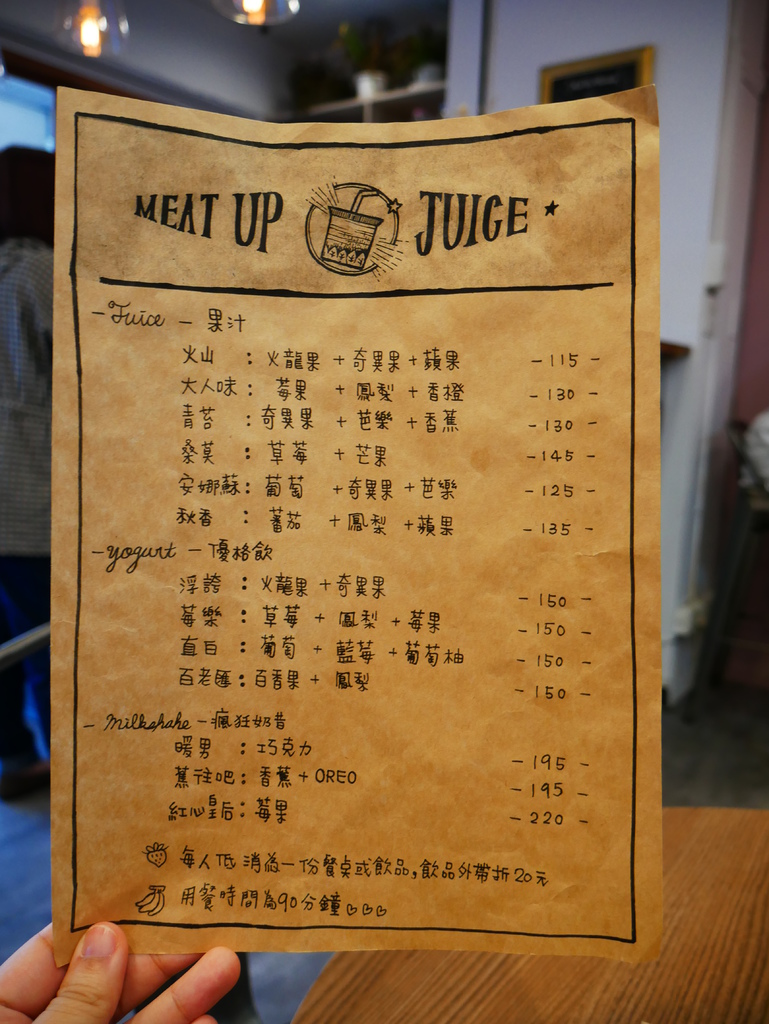 MEAT UP JUICE
- Juice - 果汁
火山 : 火龍果 + 奇異果 + 蘋果 - 115 -
大人味 : 莓果 + 鳳梨 + 香橙 - 130 -
青苔 : 奇異果 + 芭樂 + 香蕉 - 130 -
桑莫 : 草莓 + 芒果 - 145 -
安娜蘇 : 葡萄 + 奇異果 + 芭樂 - 125 -
秋香 : 蕃茄 + 鳳梨 + 蘋果 - 135 -
- yogurt - 優格飲
浮誇 : 火龍果 + 奇異果 - 150 -
莓樂 : 草莓 + 鳳梨 + 莓果 - 150 -
直白 : 葡萄 + 藍莓 + 葡萄柚 - 150 -
百老匯 : 百香果 + 鳳梨 - 150 -
- Milkshake - 瘋狂奶昔
暖男 : 巧克力 - 195 -
蕉往吧 : 香蕉 + OREO - 195 -
紅心皇后 : 莓果 - 220 -
每人低消為一份餐桌或飲品,飲品外帶折20元
用餐時間為90分鐘♡♡♡